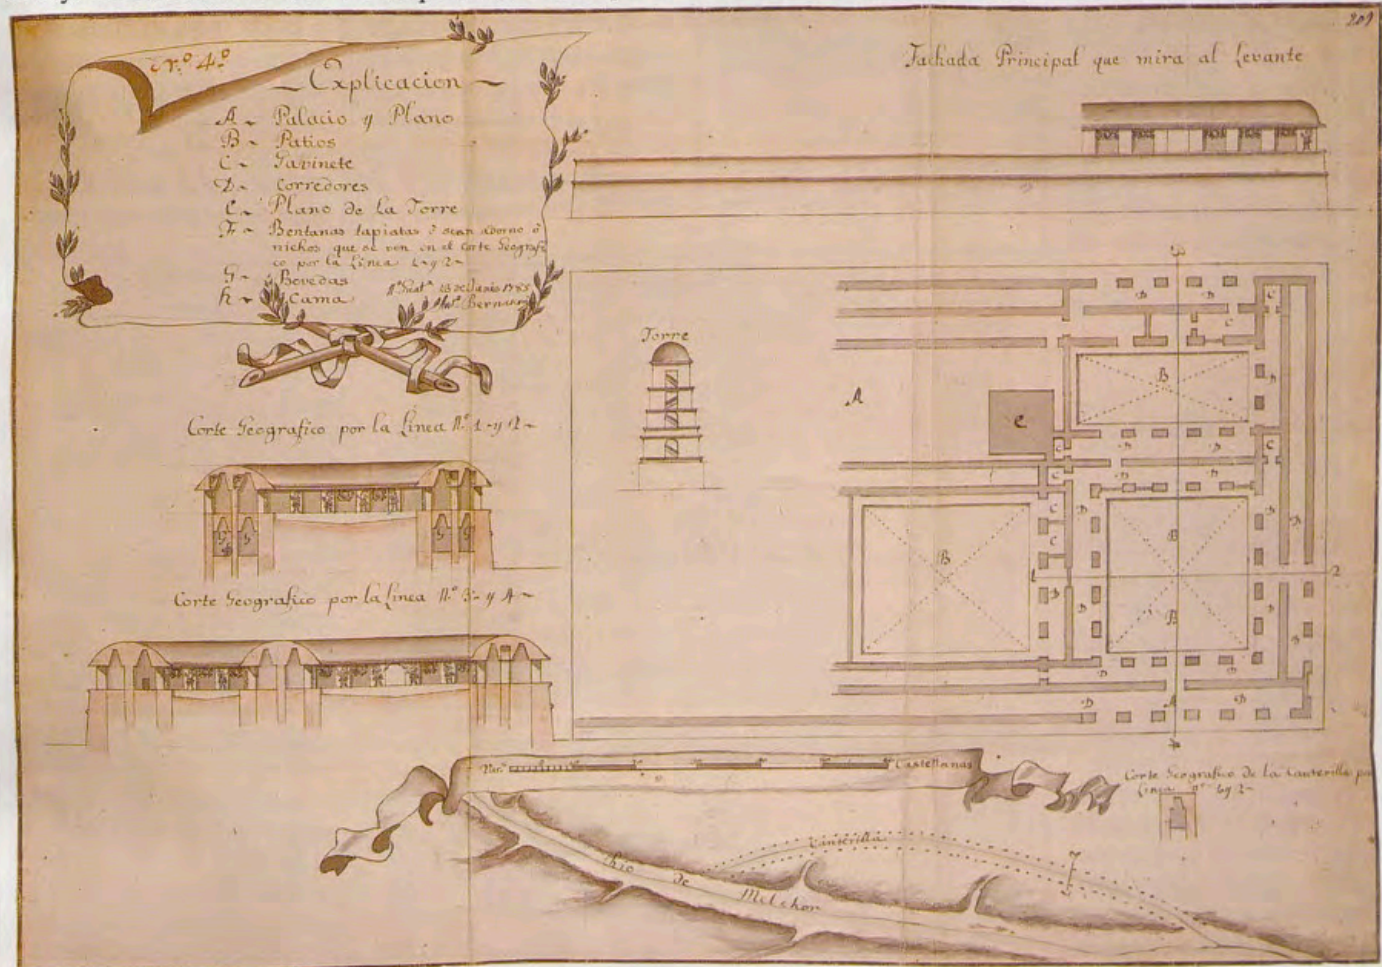 201
N.º 4.º
Explicacion
A ~ Palacio y Plano
B ~ Patios
C ~ Gavinete
D ~ Corredores
E ~ Plano de la Torre
F ~ Bentanas tapiatas ò sean adorno ò
nichos que se ven en el Corte Geografi
co por la Linea 1 y 2 ~
G ~ Bovedas
h ~ Cama
de Junio 1785
Ant.º Bernasc
Fachada Principal que mira al Levante
Torre
Corte Geografico por la Linea N.º 1 ~ y 2 ~
G G G
Corte Geografico por la Linea N.º 3 ~ y 4 ~
3
D D C
C
B D
A
e D
C D D C
C D D
C D B D D
C
B 1 2
D B D D
D D
D A D
4
Castellanas
Corte Geografico de la Canterilla por
Linea n.º 1 y 2 ~
Canterilla
Rio de Melchor